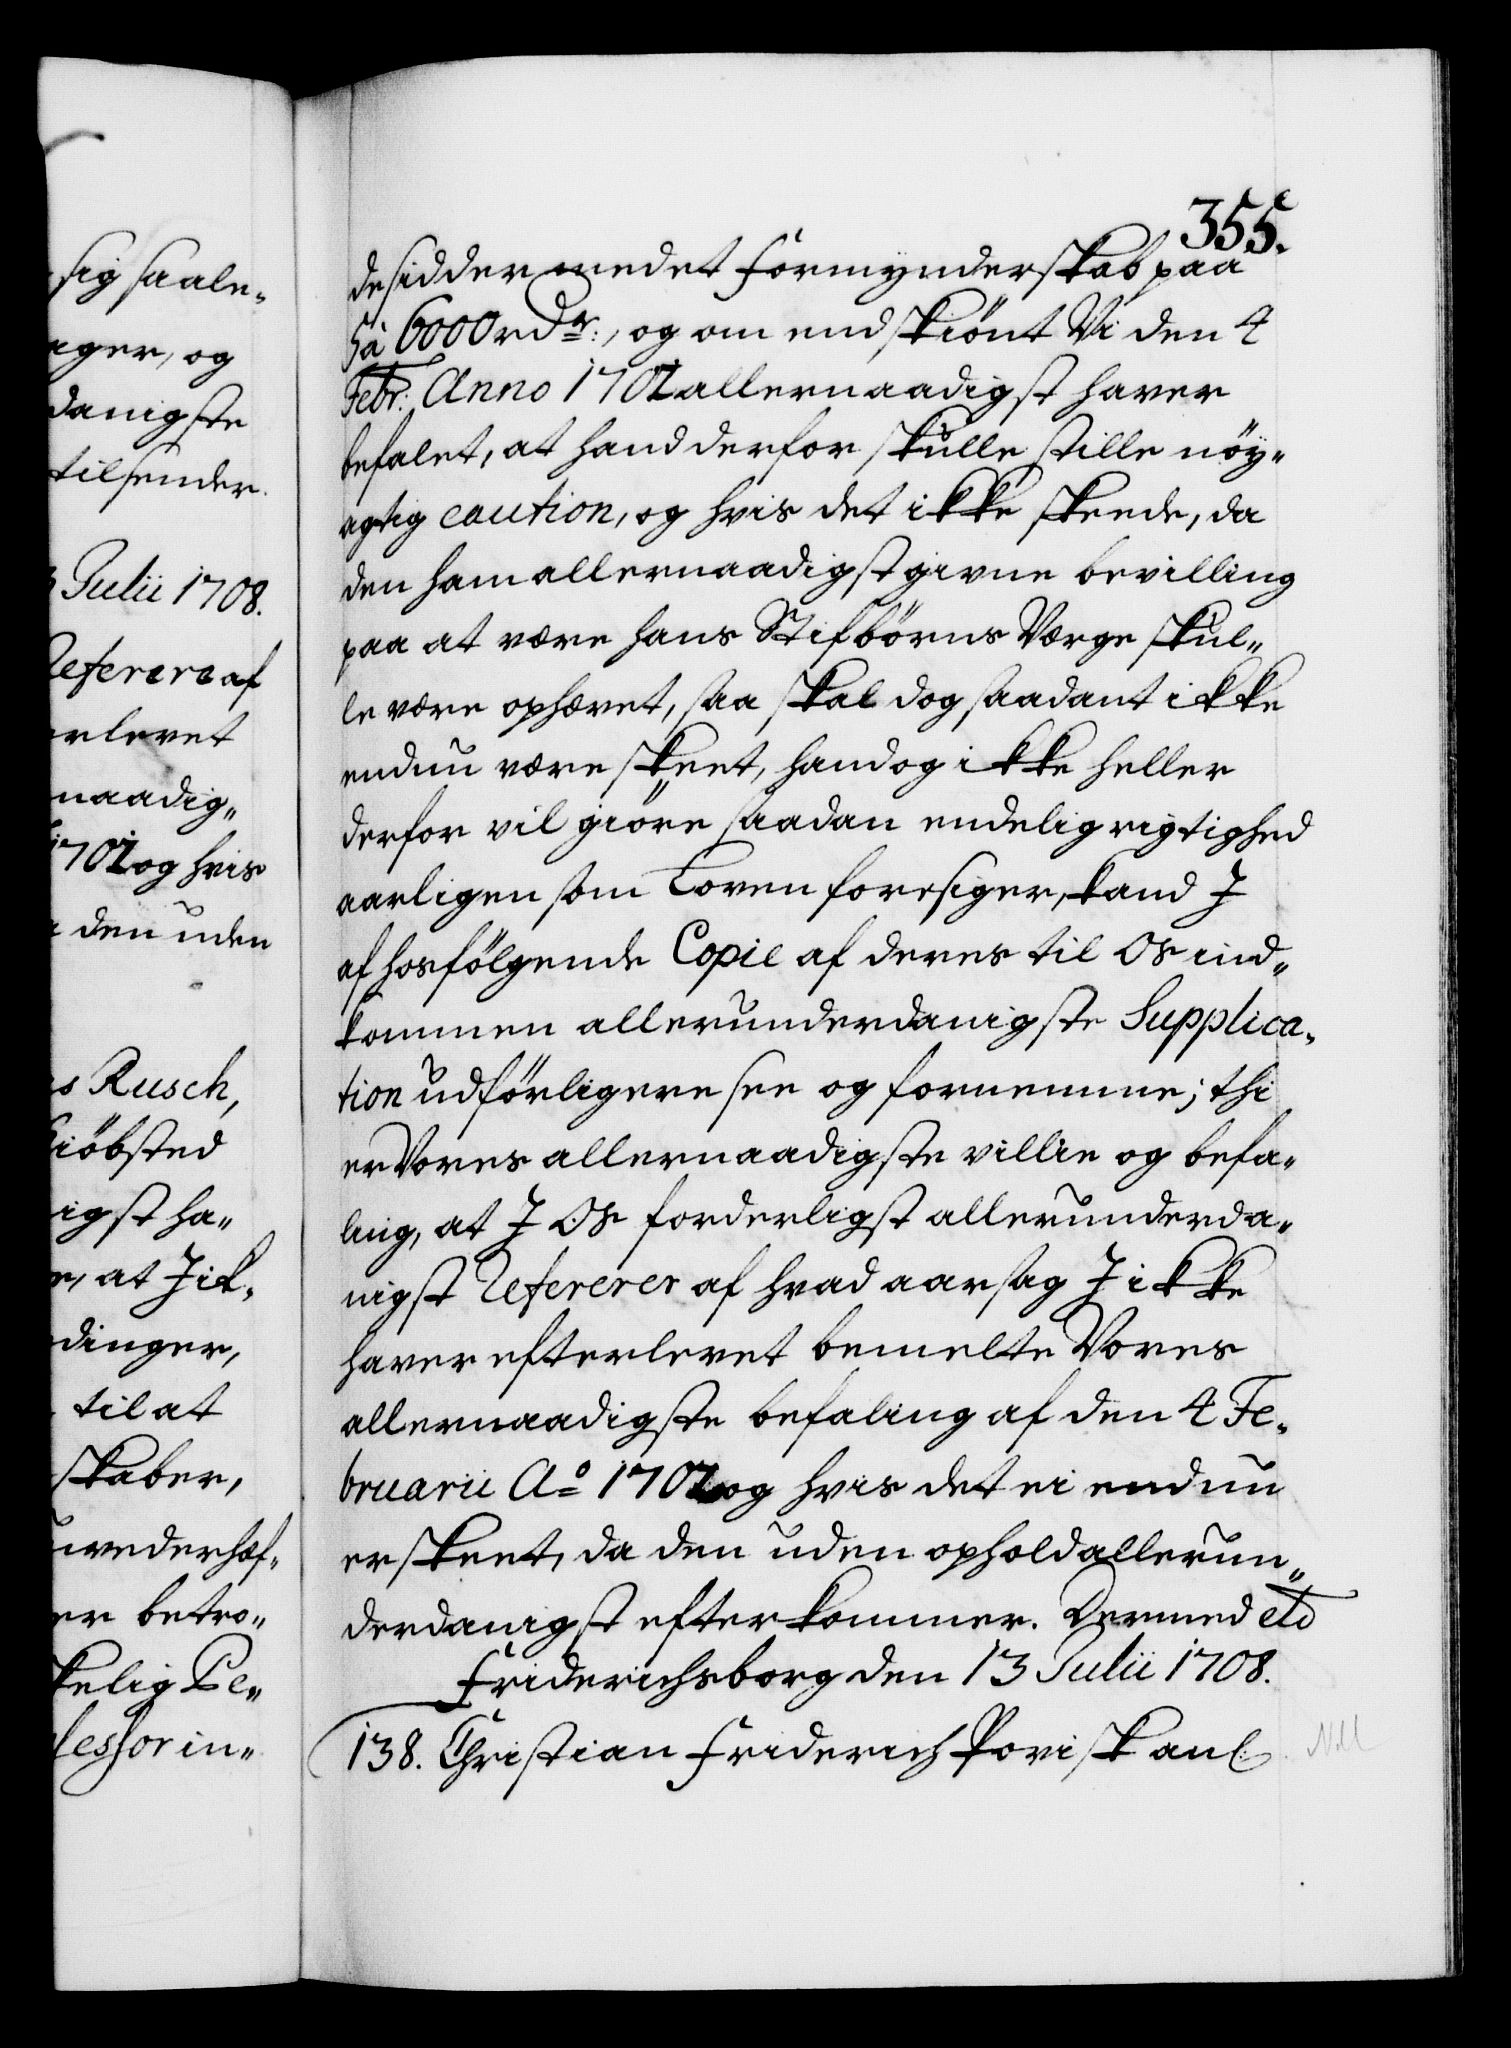 355.
de sidder med et formynderskab paa
så 6000 rdr:, og om endskiönt Vi den 4
Febr: Anno 1707 allernaadigst haver
befalet, at hand derfor skulle stille nöy„
agtig caution, og hvis det ikke skeede, da
den ham allernaadigst givne bevilling
paa at være hans Stifbörns Værge skul„
le være ophævet, saa skal dog saadant ikke
endnu være skeet, hand og ikke heller
derfor vil giöre saadan endelig rigtighed
aarligen som Loven foresiger, kand J
af hosfölgende Copie af deres til Os ind„
kommen allerunderdanigste Supplica„
tion udförligere see og fornemme; thi
er Vores allernaadigste villie og befa„
ling, at J Os forderligst allerunderda„
nigst Referer af hvad aarsag J ikke
haver efterlevet bemelte Vores
allernaadigste befaling af den 4 Fe„
bruarii Ao 1707 og hvis det ei endnu
er skeet, da den uden ophold allerun„
derdanigst efterkommer. Dermed etc
Friderichsborg den 13 Julii 1708.
138. Christian Friderich Povisk anl:
sig saale„
ager, og
danigste
tilsender.
3 Julii 1708.
Referere af
erlevet
naadig„
1707 og hvis
den uden
s Rusch,
Kiöbsted
igst ha„
e, at J ik„
dinger,
til at
skaber,
uvederhæf„
er betro„
kelig Pe„
fessor in„